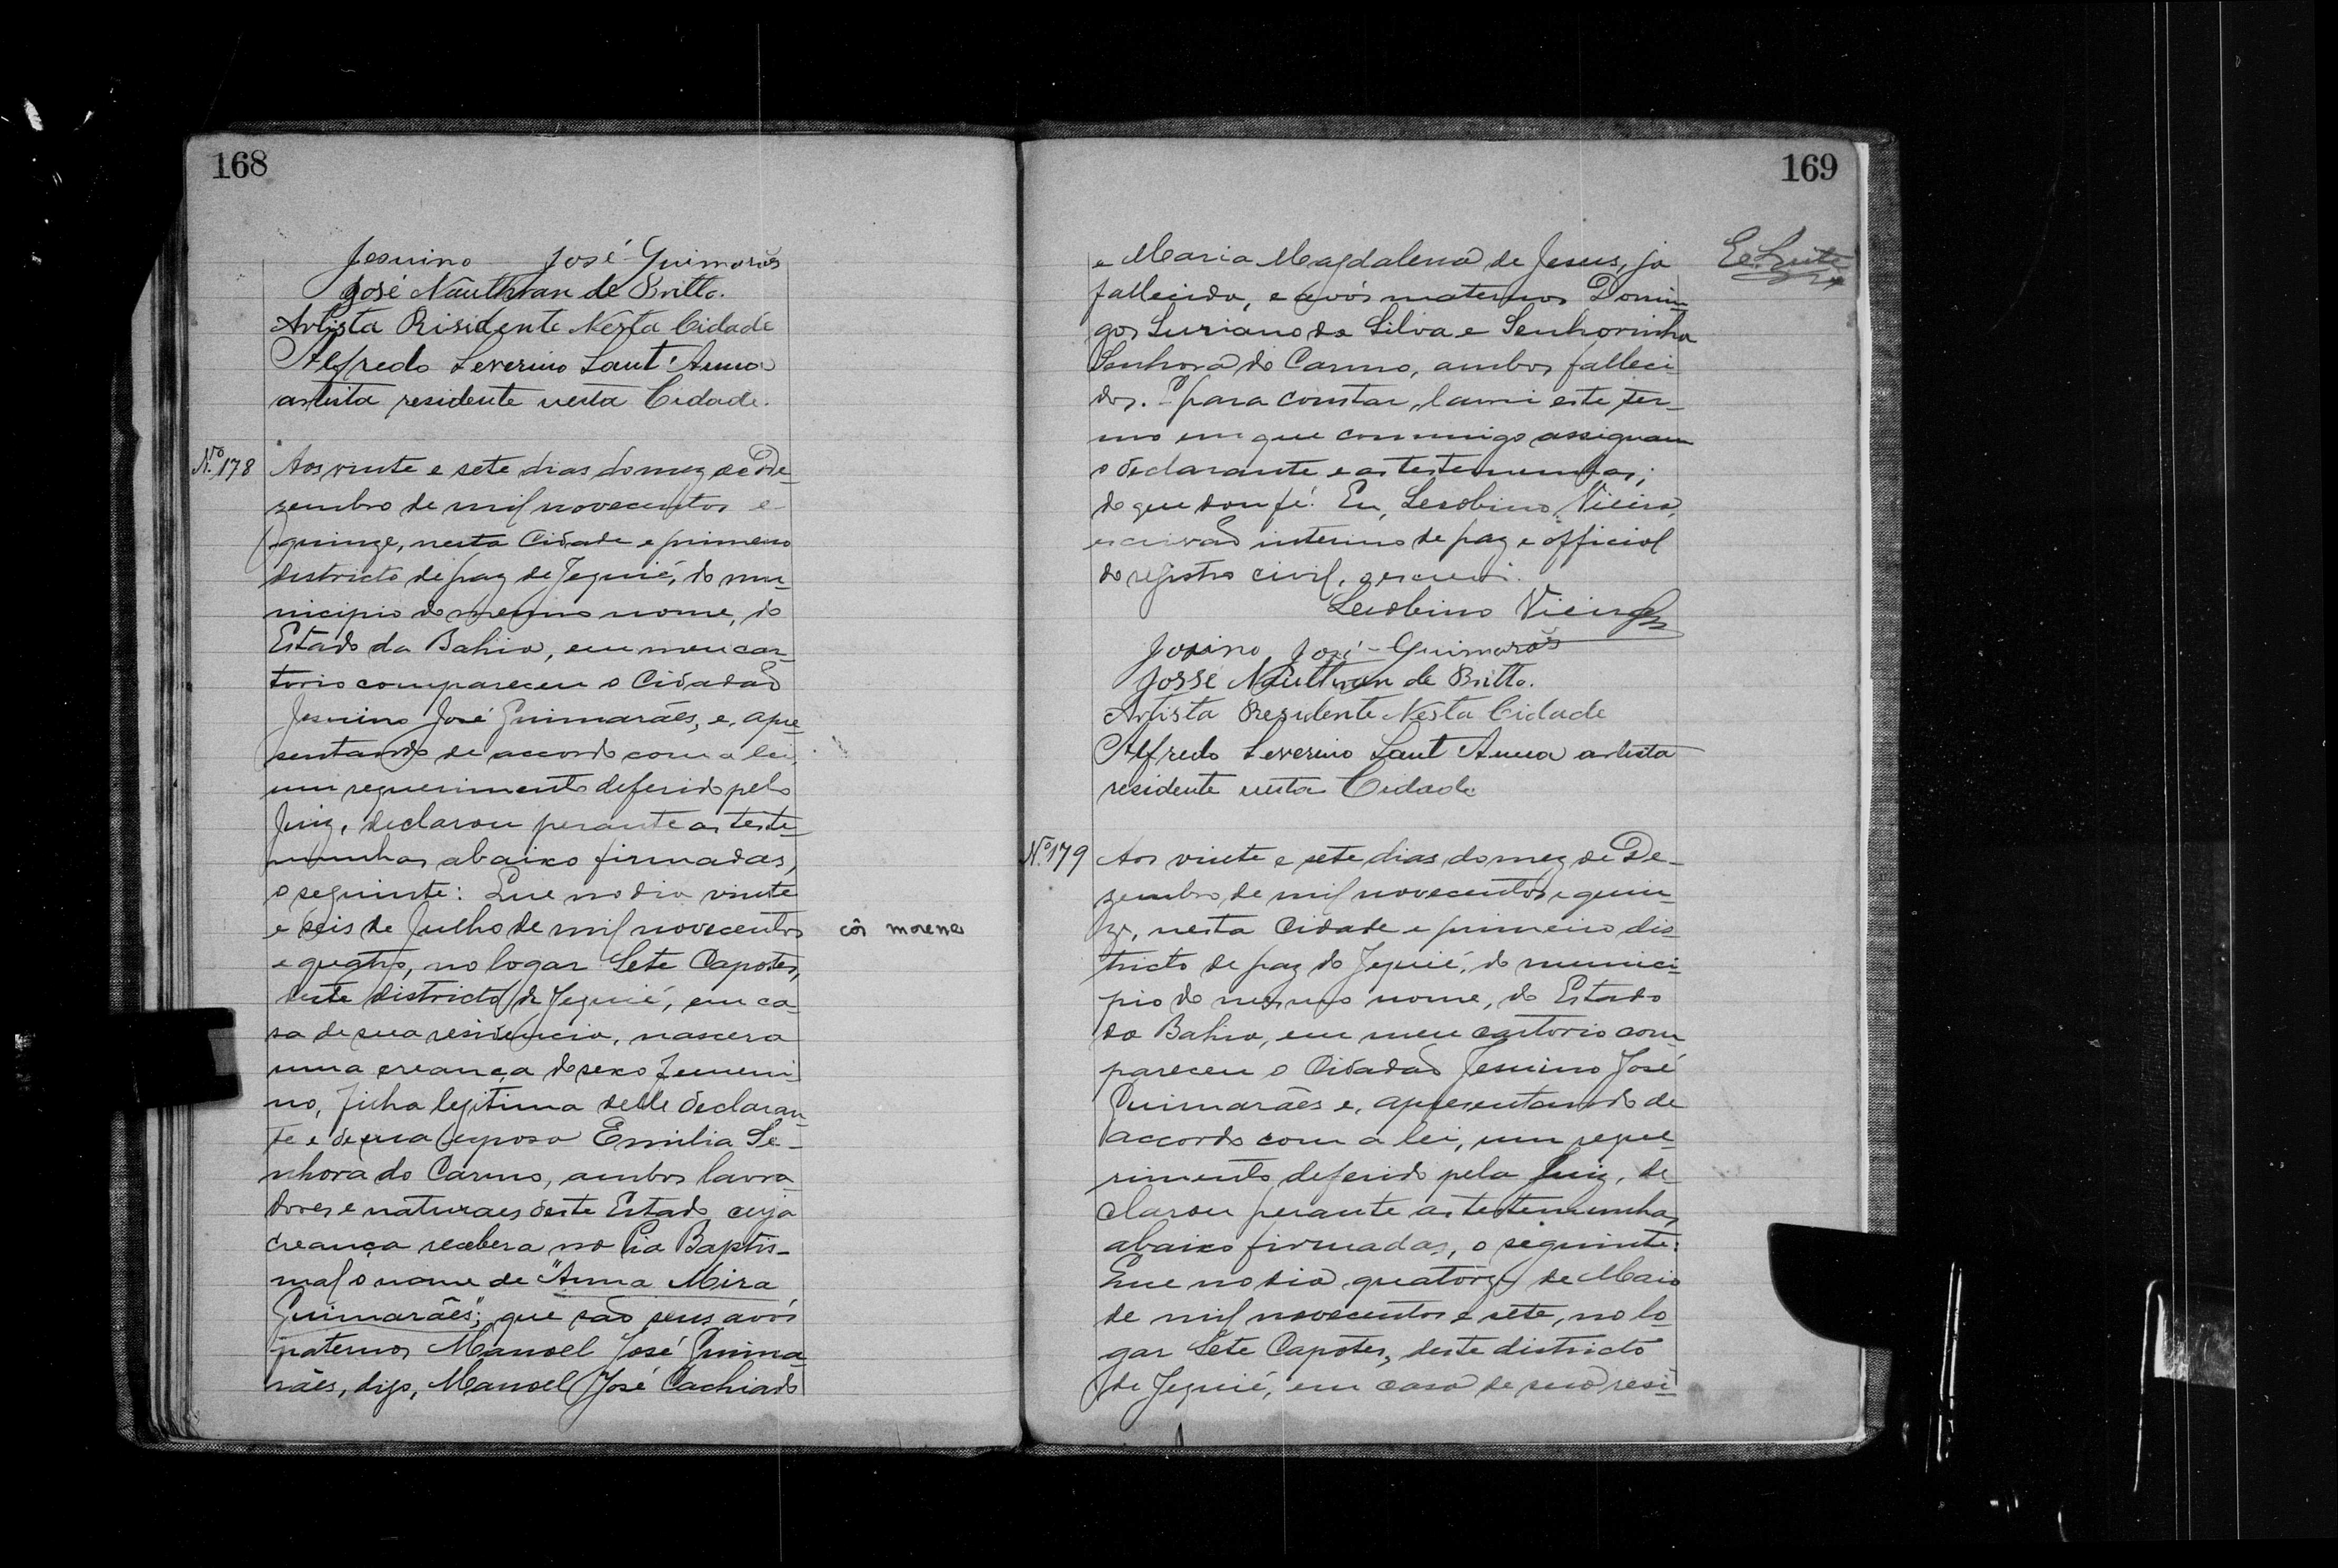 168
Jesuino José Guimarães
José Nauthran de Britto.
Artista Risidente Nesta Cidade
Alfredo Severino Sant'Anna
artista residente nesta Cidade.
N.º 178
Aos vinte e sete dias do mez de De-
zembro de mil novecentos e
quinze, nesta Cidade e primeiro
districto de paz de Jequié, do mu-
nicipio do mesmo nome, do
Estado da Bahia, em meu car-
torio compareceu o Cidadão
Jesuino José Guimarães, e, apre-
sentando de accordo com a lei
um requerimento deferido pelo
Juiz, declarou perante as teste-
munhas abaixo firmadas,
o seguinte: Que no dia vinte
e seis de Julho de mil novecentos
côr morena
e quatro, no logar Sete Capotes,
deste districto de Jequié, em ca-
sa de sua residencia, nascera
uma creança do sexo femeni-
no, filha legitima delle declaran-
te e de sua esposa Emilia Se-
nhora do Carmo, ambos lavra-
dores e naturaes deste Estado cuja
creança recebera na Pia Baptis-
mal o nome de "Anna Mira
Guimarães"; que são seus avós
paternos Manoel José Guima-
rães, digo, Manoel José Cachiado
169
e Maria Magdalena de Jesus, já
fallecida, e avós maternos Domin-
gos Suriano da Silva e Senhorinha
Senhora do Carmo, ambos falleci-
dos. E para constar, lavrei este ter-
mo em que commigo assignam
o declarante e as testemunhas;
do que dou fé. Eu, Leobino Vieira,
escrivão interino de paz e official
do registro civil, o escrevi.
Leobino Vieira
Josino José Guimarães
Josse Nauthran de Britto.
Artista Residente Nesta Cidade
Alfredo Severino Sant'Anna artista
residente nesta Cidade
N.º 179
Aos vinte e sete dias do mez de De-
zembro de mil novecentos e quin-
ze, nesta Cidade e primeiro dis-
tricto de paz de Jequié, do munici-
pio do mesmo nome, do Estado
da Bahia, em meu cartorio com-
pareceu o Cidadão Jesuino José
Guimarães e, apresentando de
accordo com a lei, um reque-
rimento deferido pelo Juiz, de-
clarou perante as testemunhas
abaixo firmadas, o seguinte:
Que no dia quatorze de Maio
de mil novecentos e sete, no lo-
gar Sete Capotes, deste districto
de Jequié, em casa de sua resi-